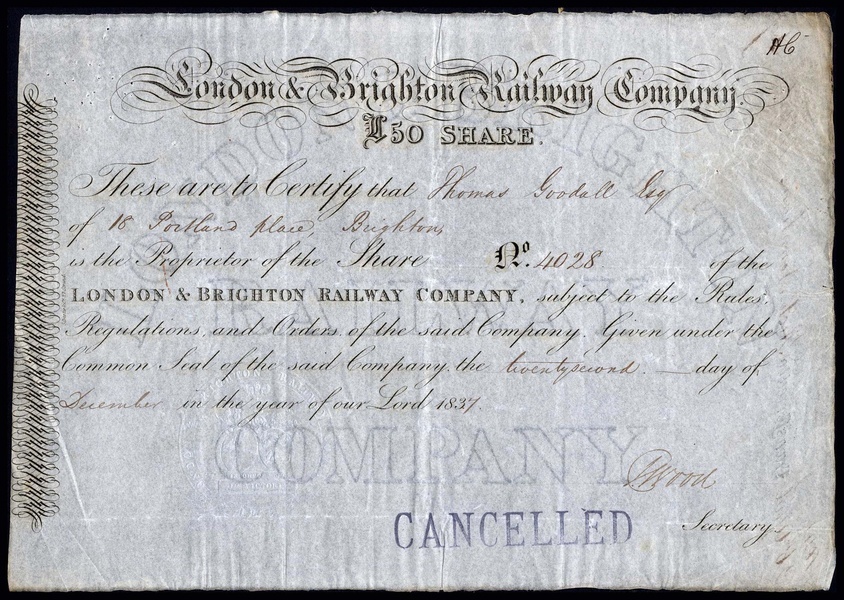 HC
London & Brighton Railway Company.
£50 SHARE.
These are to Certify that Thomas Goodall Esq
of 18 Portland place, Brighton,
is the Proprietor of the Share No. 4028 of the
LONDON & BRIGHTON RAILWAY COMPANY, subject to the Rules,
Regulations, and Orders, of the said Company. Given under the
Common Seal of the said Company, the twentysecond day of
December in the year of our Lord 1837.
Wood
CANCELLED
Secretary
LONDON & BRIGHTON
RAILWAY
COMPANY